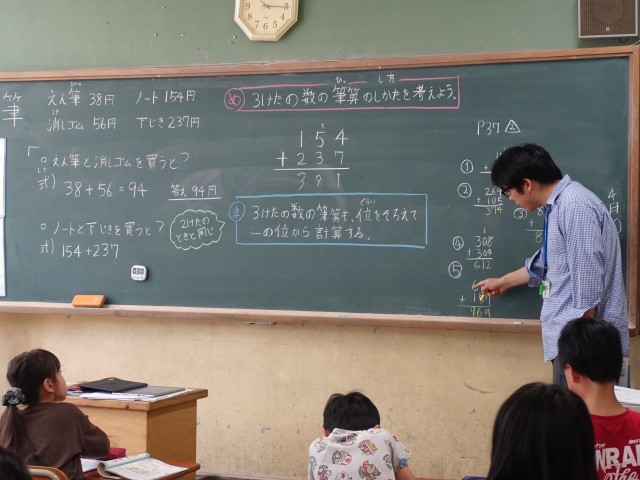 筆
えん筆 38円 ノート 154円
消しゴム 56円 下じき 237円
。えん筆と消しゴムを買うと？
式) 38 + 56 = 94 答え 94円
。ノートと下じきを買うと？
式) 154 + 237
2けたの
ときと同じ
め 3けたの数の筆算のしかたを考えよう。
ひっ し方
154
+ 237
391
ま 3けたの数の筆算も、位をそろえて
くらい
一の位から計算する。
P37
①
②
+ 105
374
③
④ 308
+ 304
612
⑤
769
4
月